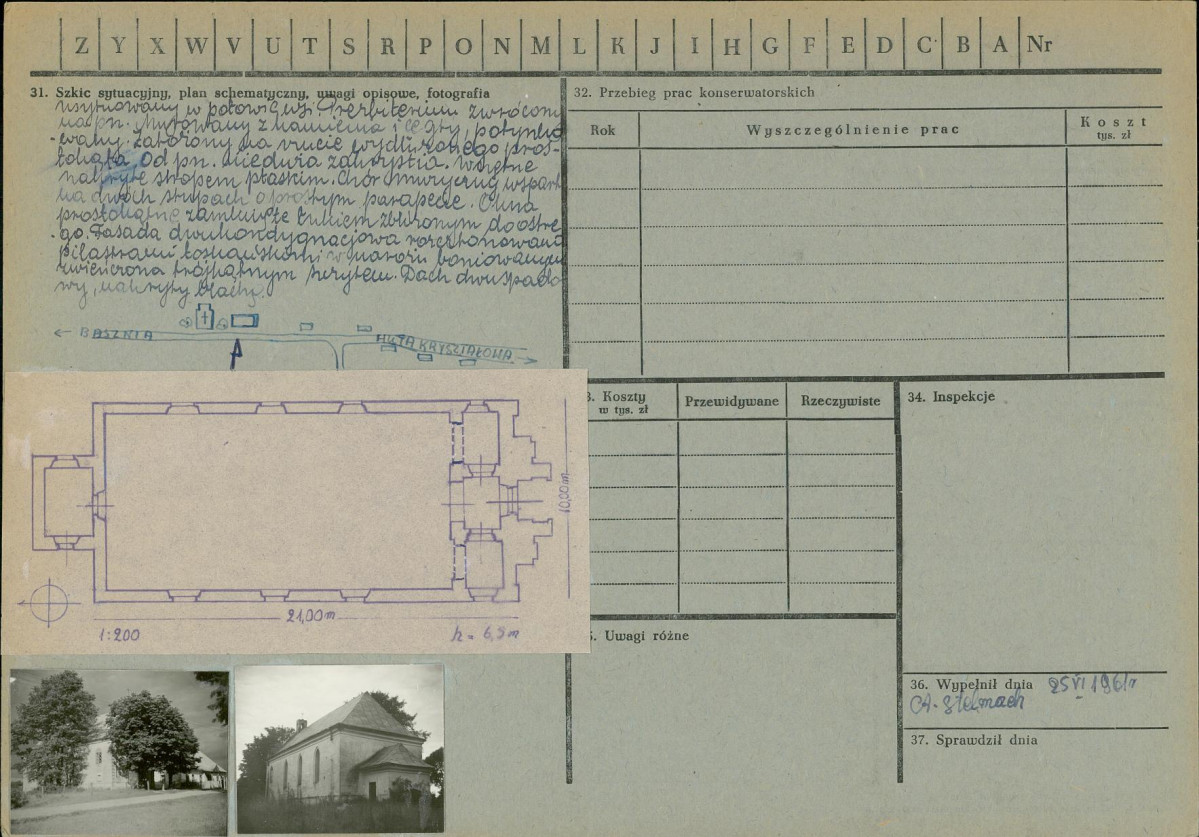 Z Y X W V U T S R P O N M L K J I H G F E D C B A Nr
31. Szkic sytuacyjny, plan schematyczny, uwagi opisowe, fotografia
usytuowany w połowie wsi. Prezbiterium zwrócone
na pn. Murowany z kamienia i cegły, potynko-
-wany. Założony na rzucie wydłużonego pros-
tokąta. Od pn. nieduża zakrystia. Wnętrze
nakryte stropem płaskim. Chór murywany wspart
na dwóch słupach o prostym parapecie. Okna
prostokątne zamknięte łukiem zbliżonym do ostre-
-go. Fasada dwukondygnacjowa rozczłonkowana
pilastrami toskańskimi w narożu boniowanym
zwieńczona trójkątnym szczytem. Dach dwuspado-
wy, nakryty blachą.
← BASZNIA
HUTA KRYSZTAŁOWA →
21,00 m
10,00 m
1:200
h = 6,5 m
32. Przebieg prac konserwatorskich
Rok
Wyszczególnienie prac
Koszt
tys. zł
3. Koszty
w tys. zł
Przewidywane
Rzeczywiste
34. Inspekcje
5. Uwagi różne
36. Wypełnił dnia 25 VI 1961 r
A. Stelmach
37. Sprawdził dnia